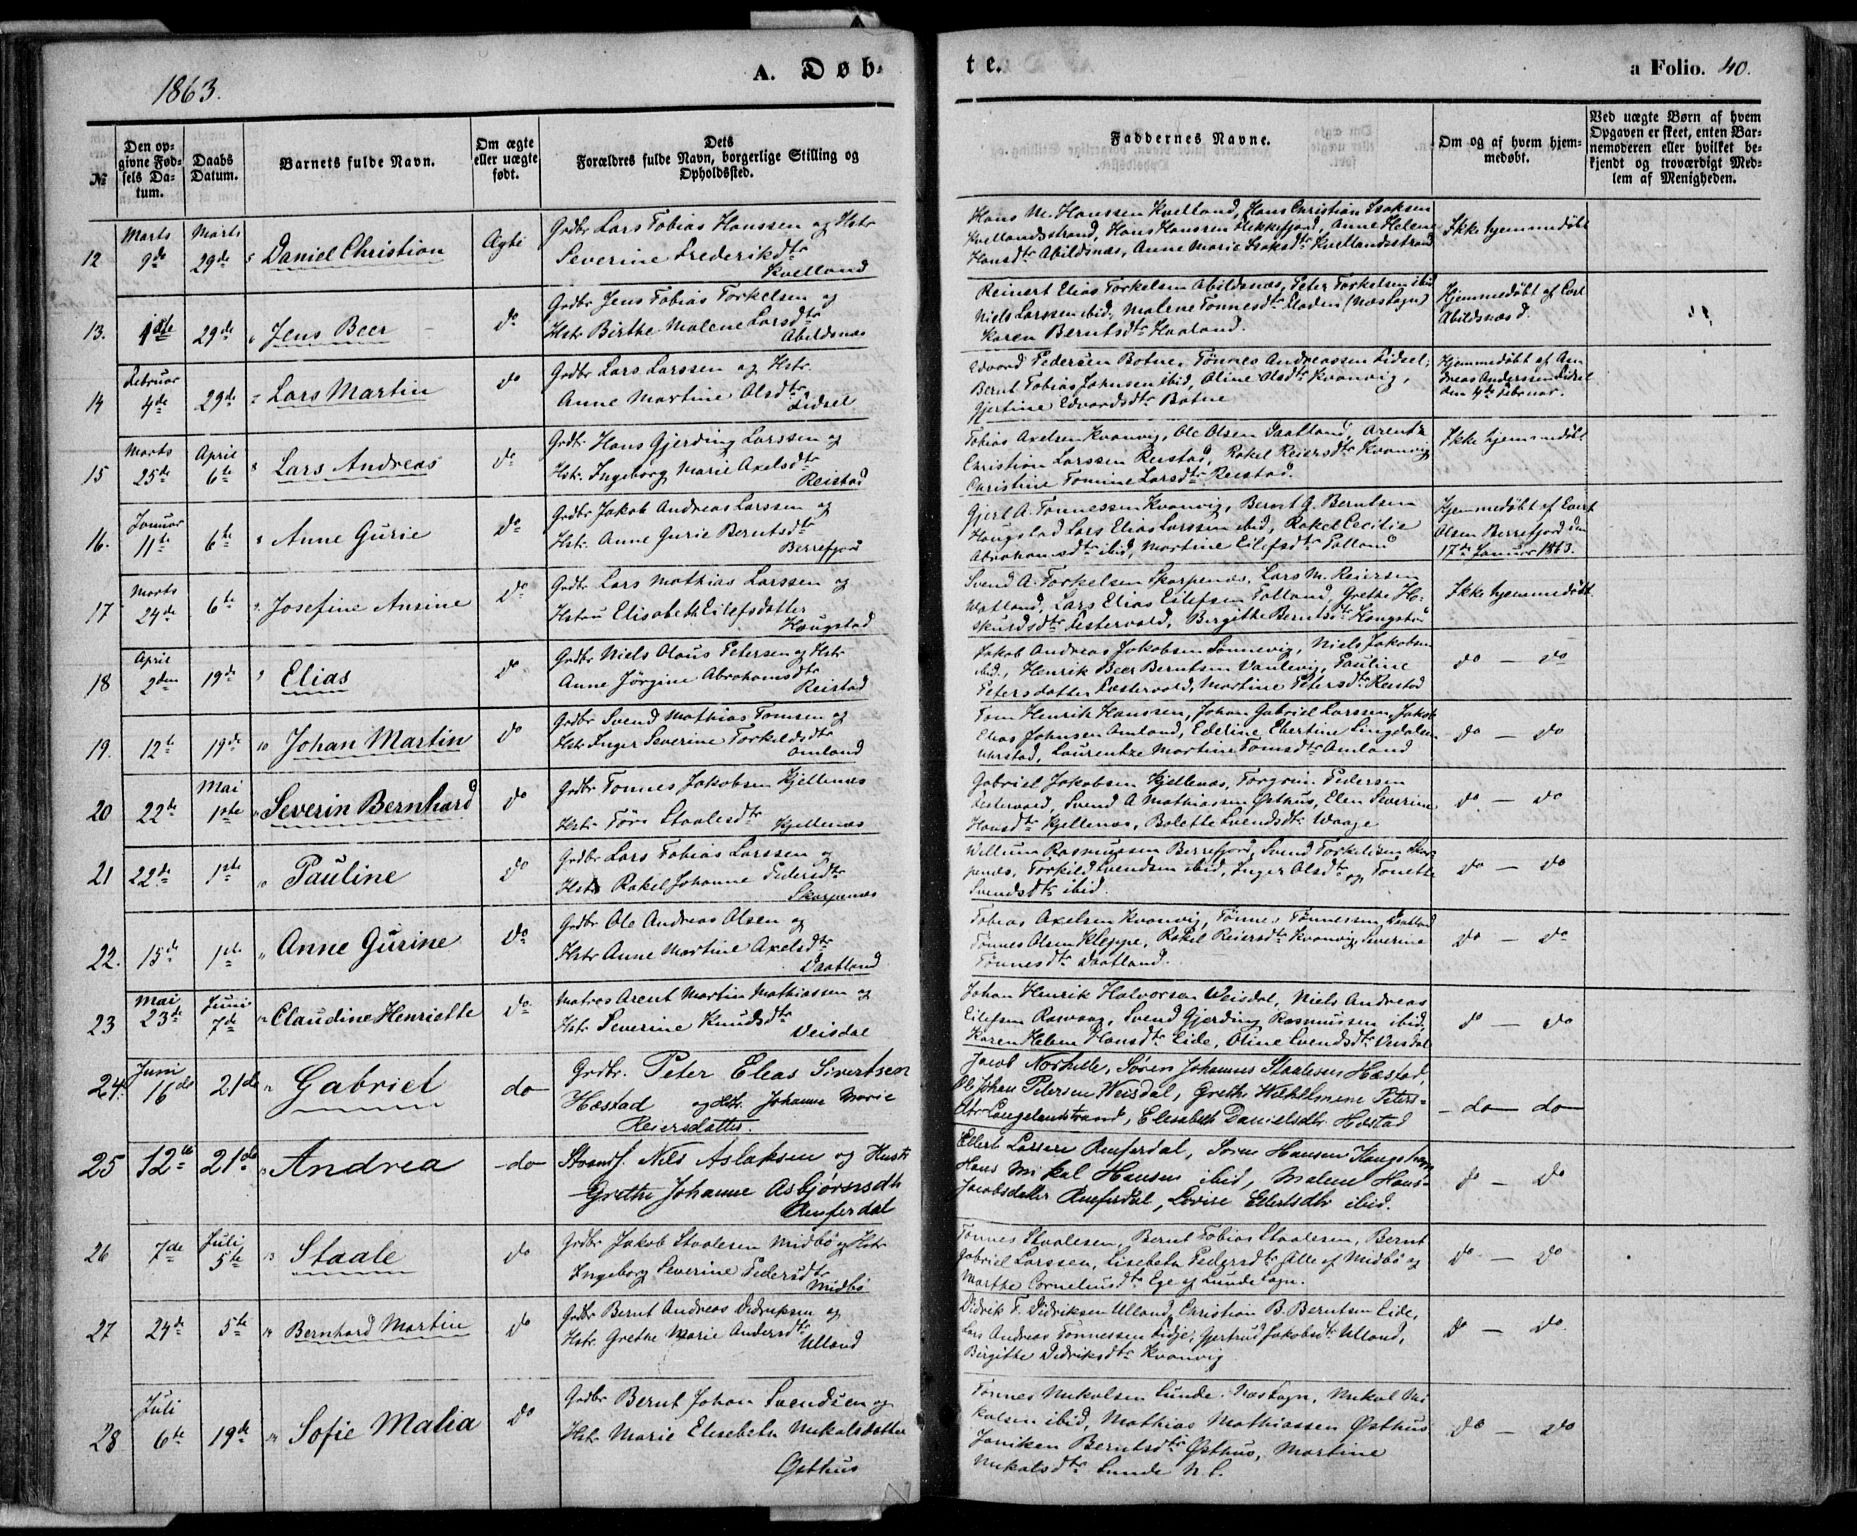 1863.
A. Døb-
te.
a Folio. 40.
№
Den op-
givne Fød-
sels Da-
tum.
Daabs
Datum.
Barnets fulde Navn.
Om ægte
eller uægte
født.
Dets
Forældres fulde Navn, borgerlige Stilling og
Opholdssted.
Faddernes Navne.
Om og af hvem hjem-
medøbt.
Ved uægte Børn af hvem
Opgaven er skeet, enten Bar-
nemoderen eller hvilket be-
kjendt og troværdigt Med-
lem af Menigheden.
12
Marts
9de
Marts
29de
Daniel Christian
Ægte
Grdbr Lars Tobias Hanssen og Hstr
Severine Frederiksdtr
Kvelland
Hans M. Hanssen Kvelland, Hans Christian Isaksen
Kvellandsstrand, Hans Hanssen Flekkefjord, Anne Helene
Hansdtr Abildsnæs, Anne Marie Isaksdtr Kvellandsstrand
Ikke hjemmedøbt
13.
1ste
29de
Jens Beer
do
Grdbr Jens Tobias Torkelsen og
Hstr Birthe Malene Larsdtr
Abildsnæs
Reinert Elias Torkelsen Abildsnæs, Peter Torkelsen ibid
Niels Larssen ibid, Malene Tønnesdtr (Næs Sogn)
Karen Berntsdtr Haaland.
Hjemmedøbt af
Abildsnæs
14
Februar
4de
29de
Lars Martin
do
Grdbr Lars Larssen og Hstr.
Anne Martine Olsdtr
Lidsel
Edvard Pedersen Botne, Tønnes Andreassen Lidsel,
Bernt Tobias Johnsen ibid, Oline Olsdtr Kvanvig,
Gjertine Edvardsdtr Botne
Hjemmedøbt af An-
dreas Anderssen Lidsel
den 4de Februar.
15
Marts
25de
April
6te
Lars Andreas
do
Grdbr. Hans Gjerding Larssen og
Hstr. Ingeborg Marie Axelsdtr
Reistad
Tobias Axelsen Kvanvig, Ole Olsen Daatland, Arent
Christian Larssen Reistad, Rakel Reiersdtr Kvanvig
Christine Tomine Larsdtr Reistad.
Ikke hjemmedøbt
16.
Januar
11te
6te
Anne Gurie
do
Grdbr Jakob Andreas Larssen og
Hstr. Anne Gurie Berntsdtr
Berrefjord
Gjert A. Tønnessen Kvanvig, Bernt G. Berntsen
Haugstad Lars Elias Larssen ibid, Rakel Cecilie
Abrahamsdtr ibid, Martine Eilefsdtr Tolland
Hjemmedøbt af
Olsen Berrefjord den
17de Januar 1863.
17
Marts
24de
6te
Josefine Ansine
do
Grdbr Lars Mathias Larssen og
Hstru Elisabeth Eilefsdatter
Haugstad
Svend A. Torkelsen Skarpenæs, Lars M. Reiersen
Lars Elias Eilefsen Tolland, Grethe
Birgitte Berntsdtr Haugstad
Ikke hjemmedøbt
18
April
2den
19de
Elias
do
Grdbr Niels Olaus Petersen og Hstr
Anne Jørgine Abrahamsdtr
Reistad
Jakob Andreas Jakobsen Niels Jakobsen
ibid, Henrik Beer Berntsen Pauline
Petersdatter Martine Petersdtr Reistad
do — do
19.
12te
19de
Johan Martin
do
Grdbr Svend Mathias Tomsen og
Hstr Inger Severine Torkildsdtr
Omland
Tom Henrik Hanssen, Johan Gabriel Larssen, Jakob
Elias Johnsen Omland, Ederine Ebertine
Laurentze Martine Tomsdtr Omland
do — do
20
22de
Mai
1ste
Severin Bernhard
do
Grdbr Tønnes Jakobsen Kjellenæs
Hstr Staalesdtr Kjellenæs
Gabriel Jakobsen Kjellenæs, Torgrim Pedersen
Svend A Mathiassen Østhus, Elen Severine
Hansdtr Kjellenæs, Bolette Svendsdtr Waage
do — do
21
22de
1ste
Pauline
do
Grdbr Lars Tobias Larssen og
Hstr Rakel Johanne Pedersdtr
Skarpenæs
Rasmussen Berrefjord, Svend Torkelsen Skar-
penæs, Torkild Svendsen ibid, Inger Olsdtr og Tonette
Svendsdtr ibid.
do — do
22.
15de
1ste
Anne Gurine
do
Grdbr Ole Andreas Olsen og
Hstr Anne Martine Axelsdtr
Daatland
Tobias Axelsen Kvanvig, Tønnes Tønnessen Daatland
Tønnes Olsen Kleppe, Rakel Reiersdtr Kvanvig, Severine
Tønnesdtr Daatland.
do — do
23
Mai
23de
Juni
7de
Claudine Henriette
do
Matros Arent Martin Mathiassen og
Hstr Severine Knudsdtr
Veisdal
Johan Henrik Halvorsen Weisdal, Niels Andreas
Eilefsen Svend Gjerding Rasmussen ibid,
Karen Helene Hansdtr Eide, Oline Svendsdtr Veisdal
do — do
24.
Juni
16de
21de
Gabriel
do
Grdbr. Peter Eleas Sivertsen
Hæstad og Hstr. Johanne Marie
Reiersdatter.
Jacob Søren Johannes Staalesen Hæstad,
Ole Johan Petersen Weisdal, Grethe Wilhelmine Peters-
Elisabeth Danielsdtr Hæstad
do — do
25
12te
21de
Andrea
do
Strands. Nils Aslaksen og Hustr
Grethe Johanne Asbjørnsdtr
Ramferdal
Ellert Larsen Ramferdal, Søren Hansen
Hans Mikal Hansen ibid, Malene Hans-
Jacobsdatter Ramferdal, Lovise Ellertsdtr ibid.
do — do
26
7de
Juli
5te
Staale
do
Grdbr Jakob Staalesen Midbø og Hstr
Ingeborg Severine Pedersdtr
Midbø
Tønnes Staalesen, Bernt Tobias Staalesen, Bernt
Gabriel Larssen, Lisebeth Pedersdtr Alle af Midbø og
Marthe Corneliusdtr Ege af Lunde Sogn.
do — do
27
24de
5te
Bernhard Martin
do
Grdbr Bernt Andreas Didriksen og
Hstr Grethe Marie Andersdtr
Ulland
Didrik T. Didriksen Ulland, Christian B. Berntsen Eide,
Lars Andreas Tønnessen Lidje, Gjertrud Jakobsdtr Ulland,
Birgitte Didriksdtr Kvanvig
do — do
28
Juli
6te
19de
Sofie Malia
do
Grdbr Bernt Johan Svendsen og
Hstr Marie Elisebeth Mikalsdatter
Østhus
Tønnes Mikalsen Lunde Næs Sogn, Mikal Mi-
kalsen ibid, Mathias Mathiassen Østhus
Janiken Berntsdtr Østhus, Martine
Mikalsdtr Lunde N. S.
do — do